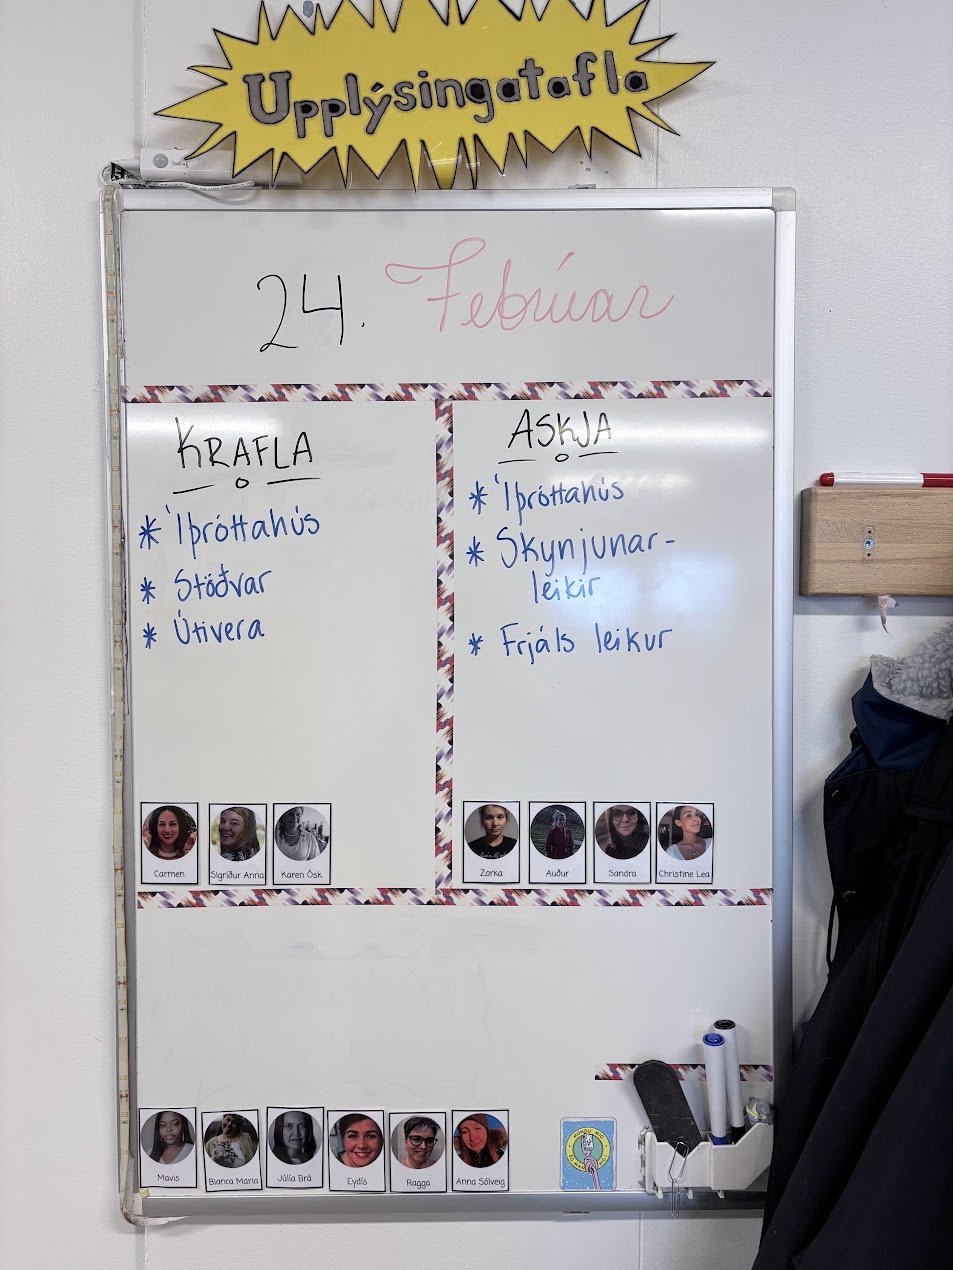 Upplýsingatafla
24. Febrúar
KRAFLA
* Íþróttahús
* Stöðvar
* Útivera
ASKJA
* Íþróttahús
* Skynjunar-
leikir
* Frjáls leikur
Carmen
Sigríður Anna
Karen Ósk
Zorka
Auður
Sandra
Christine Lea
Mavis
Bianca Maria
Júlía Brá
Eydís
Ragga
Anna Sólveig